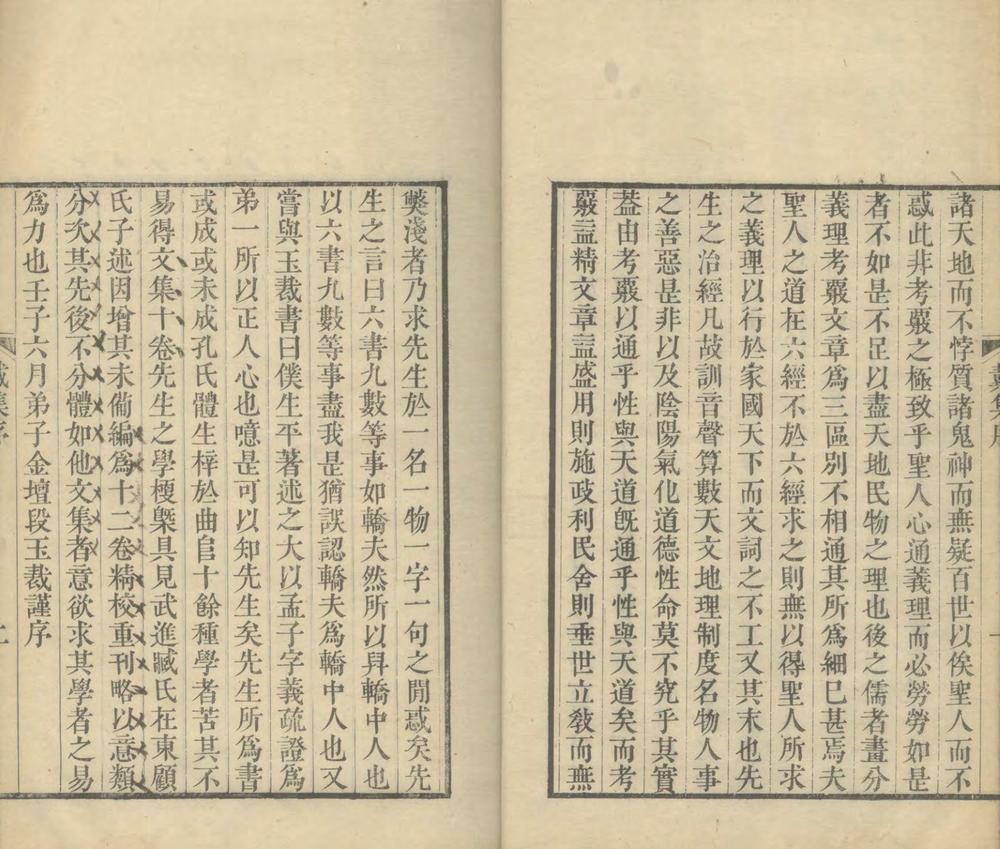 諸天地而不悖質諸鬼神而無疑百世以俟聖人而不
惑此非考覈之極致乎聖人心通義理而必勞勞如是
者不如是不足以盡天地民物之理也後之儒者畫分
義理考覈文章爲三區別不相通其所爲細已甚焉夫
聖人之道在六經不於六經求之則無以得聖人所求
之義理以行於家國天下而文詞之不工又其末也先
生之治經凡故訓音聲算數天文地理制度名物人事
之善惡是非以及陰陽氣化道德性命莫不究乎其實
蓋由考覈以通乎性與天道旣通乎性與天道矣而考
覈益精文章益盛用則施政利民舍則垂世立敎而無
獘淺者乃求先生於一名一物一字一句之閒惑矣先
生之言曰六書九數等事如轎夫然所以舁轎中人也
以六書九數等事盡我是猶誤認轎夫爲轎中人也又
嘗與玉裁書曰僕生平著述之大以孟子字義疏證爲
弟一所以正人心也噫是可以知先生矣先生所爲書
或成或未成孔氏體生梓於曲𠂤十餘種學者苦其不
易得文集十卷先生之學梗槩具見武進臧氏在東顧
氏子述因增其未備編爲十二卷精校重刊略以意類
分次其先後不分體如他文集者意欲求其學者之易
爲力也壬子六月弟子金壇段玉裁謹序